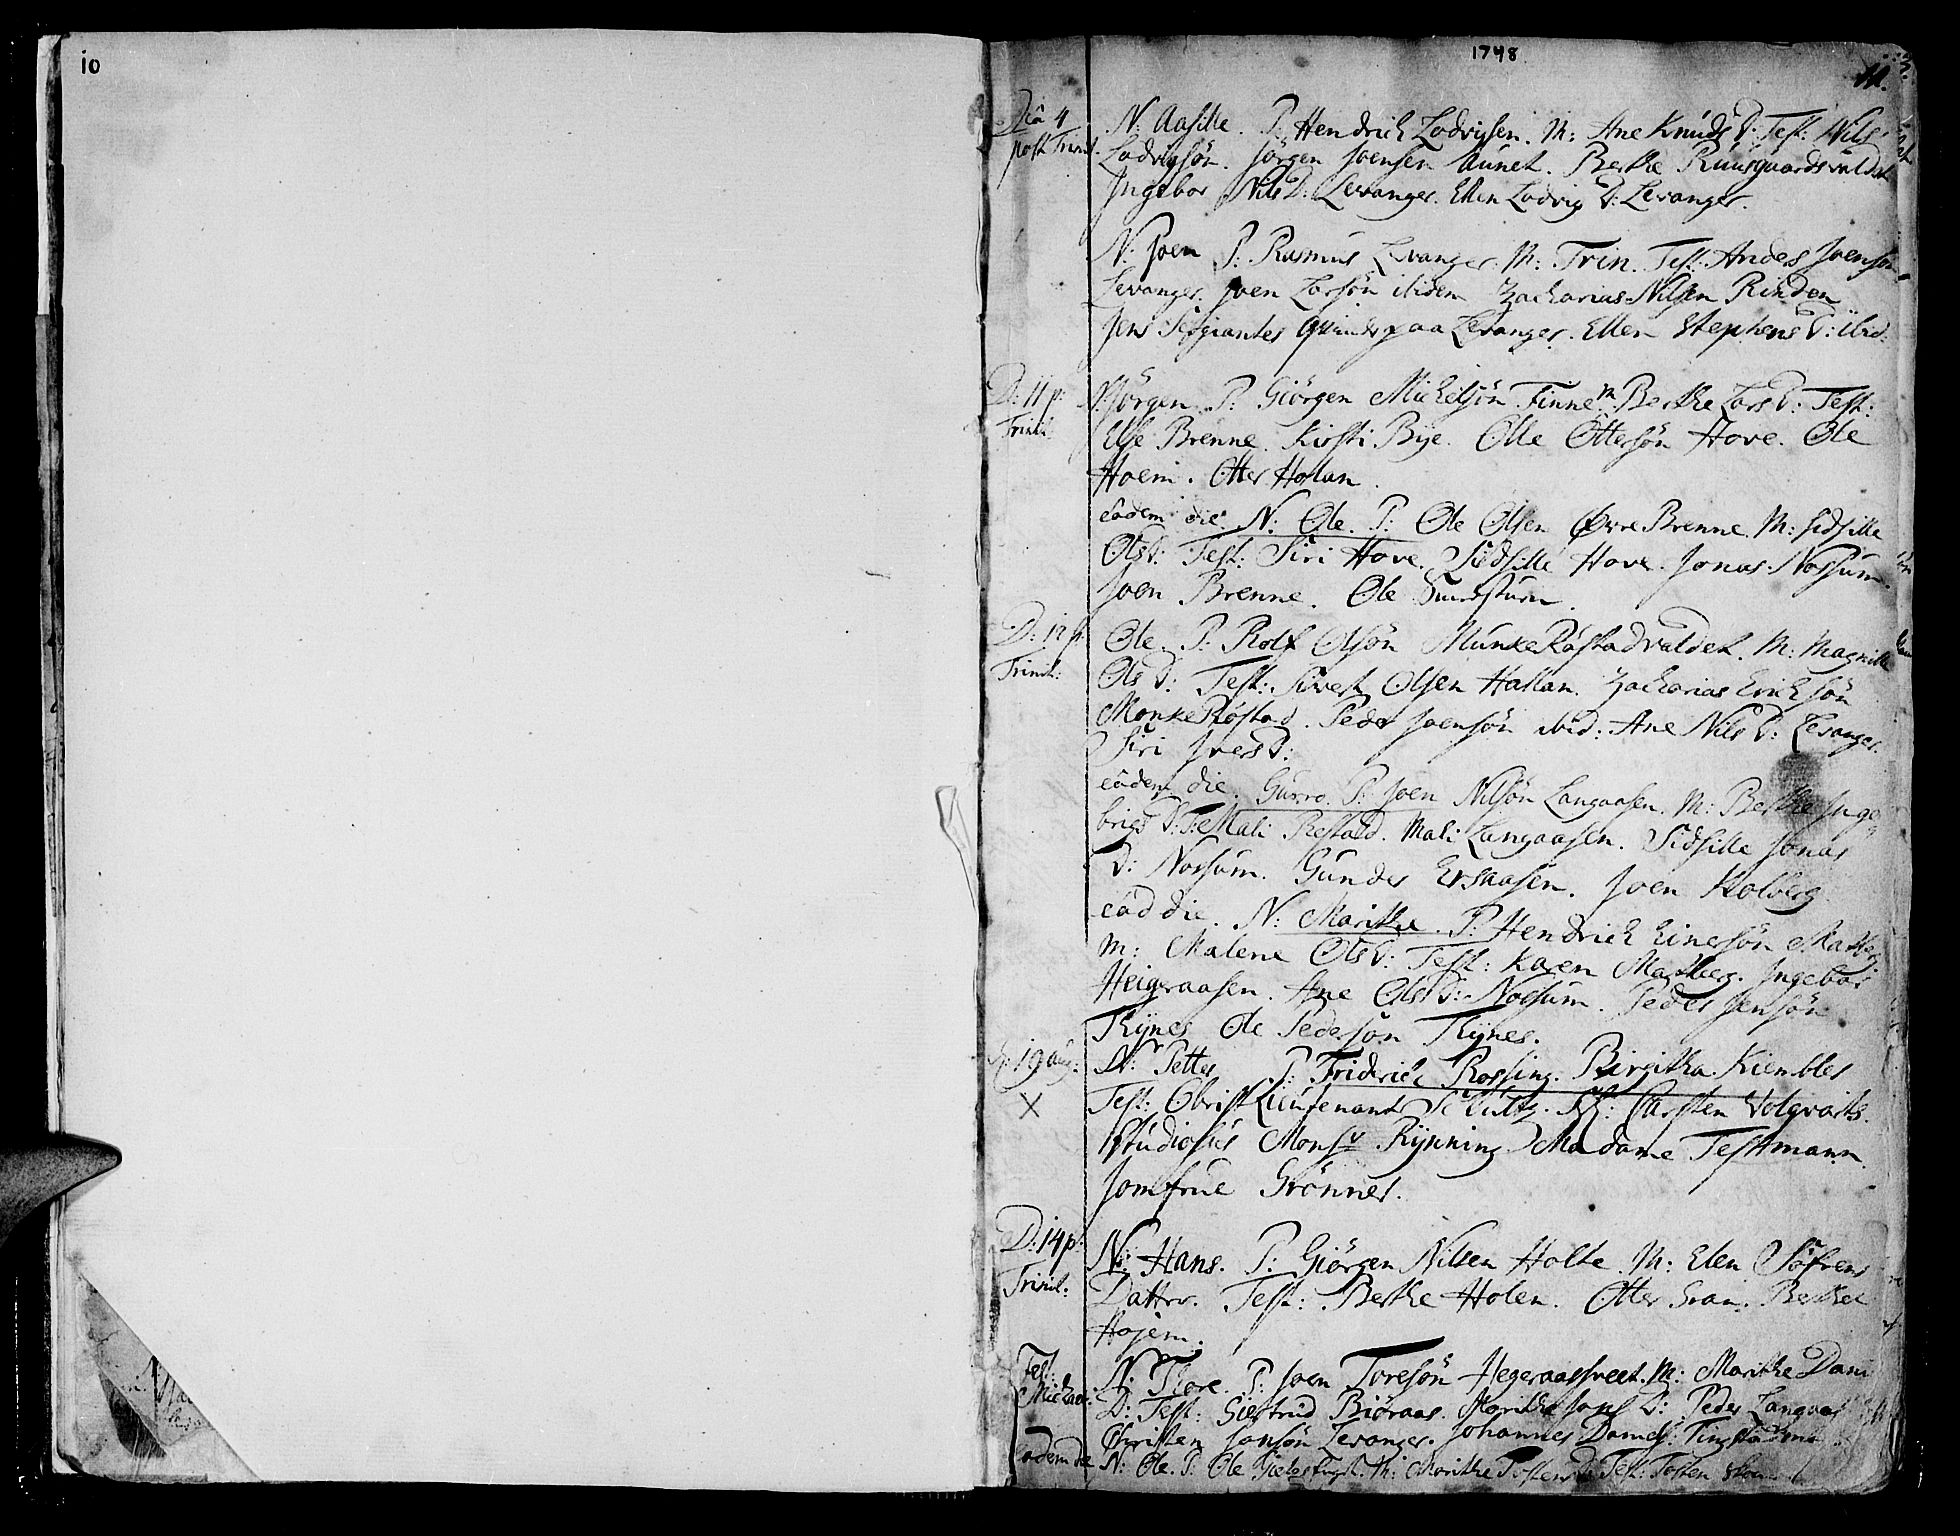 10
1748
11.
Dca 4 post Trinit.
N: Aasille. P: Hendrich Lodvigsen. M: Ane Knuds D: Test: Nils
Lodvigsön. Jörgen Joensen Aunet. Berthe Ruusgaardsvaldet
Ingebor Nils D: Levanger. Ellen Lodvig D: Levanger.
N: Joen P: Rasmus Levanger. M: Trin. Test: Anders Joensön
Levanger. Joen Larsön ibidem Zacharias Nilsen Rinden
Jens Sergiantes paa Levanger. Ellen Stephens D: ibid:
D: 11 p: Trinit:
N: Jörgen P: Giörgen Michelsön Finne M: Berthe Lars D: Test:
Else Brenne. Kirsti Bye. Olle Ottersön Hove. Ole
Hoem. Otter Holan.
eadem die. N: Ole. P: Ole Olsen Øvre Brenne. M: Sidsille
Ols D: Test: Siri Hove. Sidsille Hove. Jonas Nossum.
Joen Brenne. Ole
D: 12 p: Trinit:
Ole P: Rolf Olsön MunkeRöstadvaldet. M: Magnille
Ols D: Test: Sivert Olsen Hallan. Zacharias Erichsön
MonkeRöstad. Peder Joensön ibid: Ane Nils D: Levanger.
Siri Ivers D:
eadem die. Gurro. P: Joen Nilsön Langaasen. M: Berthe Inge
brigs D: T: Mali Restad. Mali Langaasen. Sidsille Jonas
D: Nossum. Gunder Ersaasen. Joen Holberg
ead die. N: Marithe. P: Hendrich Einersön Marberg.
M: Malene Ols D: Test: Karen Marberg. Ingebor
Heigraasen. Ane Ols D: Nossum. Peder Jensön
Thynes Ole Pedersön Thynes.
19 aug: X
N: Petter P: Friderich Rossing. Birgitha Kiembler
Test: Obrist Lieutenant Schultz. Carsten Volqvarts.
Studiosus Monsr Rynning Madame Testmann.
Jomfrue Grönner.
D: 14 p: Trinit:
N: Hans. P: Giörgen Nilsen Holte. M: Elen Söfrens
Datter. Test: Berthe Holen. Otter Gran. Berthel
Hojem.
Fest: Michaer:
N: Thore. P: Joen Toresön Hegeraasveet. M: Marithe Dani
D: Test: Giertrud Biöraas. Marithe Jons D: Peder Langaas
Christen Jonsön Levanger. Johannes Daniels:
Eadem die N: Ole. P: Ole M: Marithe Tostens D: Test: Tosten